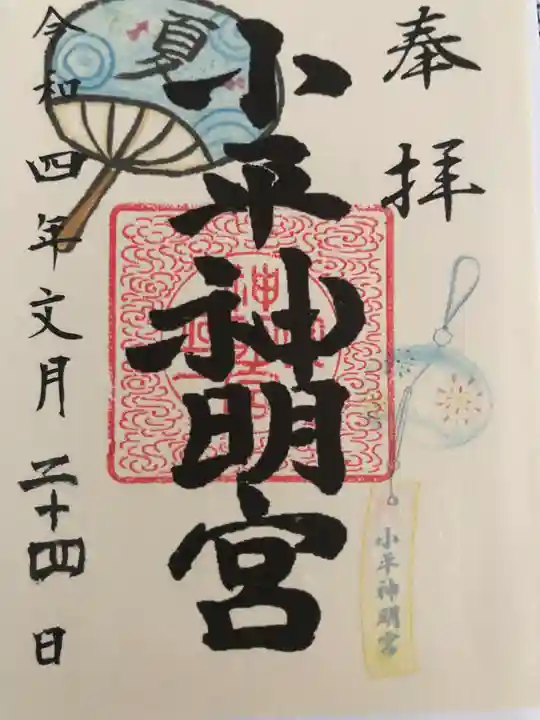 奉拝
夏
小平神明宮
小平神明宮
令和四年文月二十四日